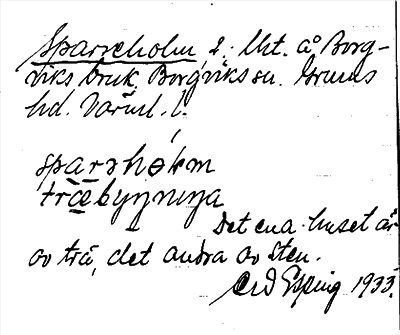 Sparreholm, 2. Uht. å Borg-
viks bruk, Borgviks sn. Grums
hd. Värml. l.
sparshələm
træbygniŋa
Det ena huset är
av trä, det andra av sten.
Erid Esping 1933.